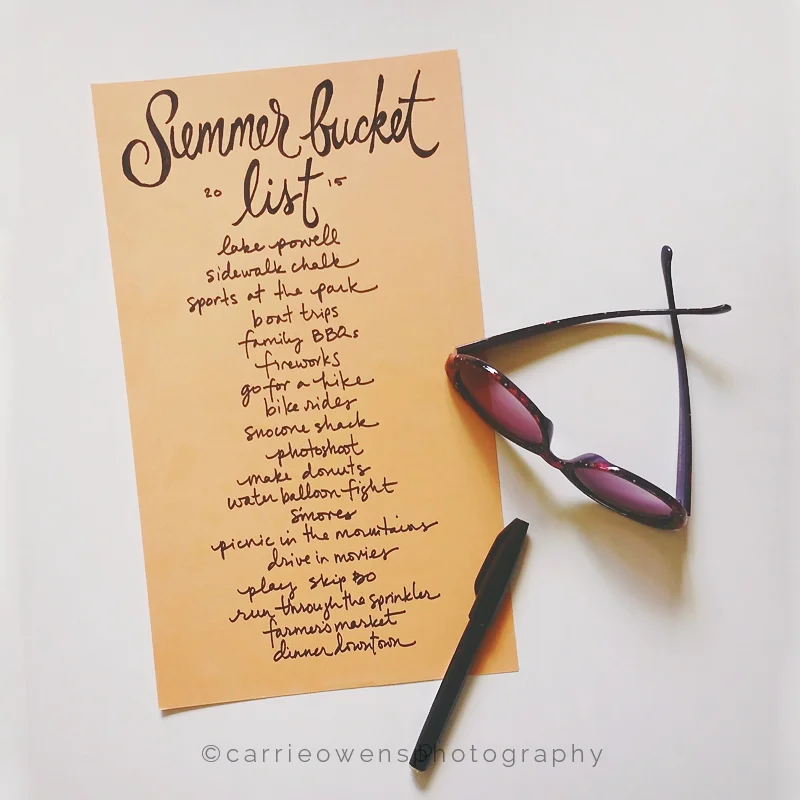 Summer bucket
list
20 15
lake powell
sidewalk chalk
sports at the park
boat trips
family BBQs
fireworks
go for a hike
bike rides
snocone shack
photoshoot
make donuts
water balloon fight
s'mores
picnic in the mountains
drive in movies
play skip BO
run through the sprinkler
farmer's market
dinner downtown
©carrieowensphotography